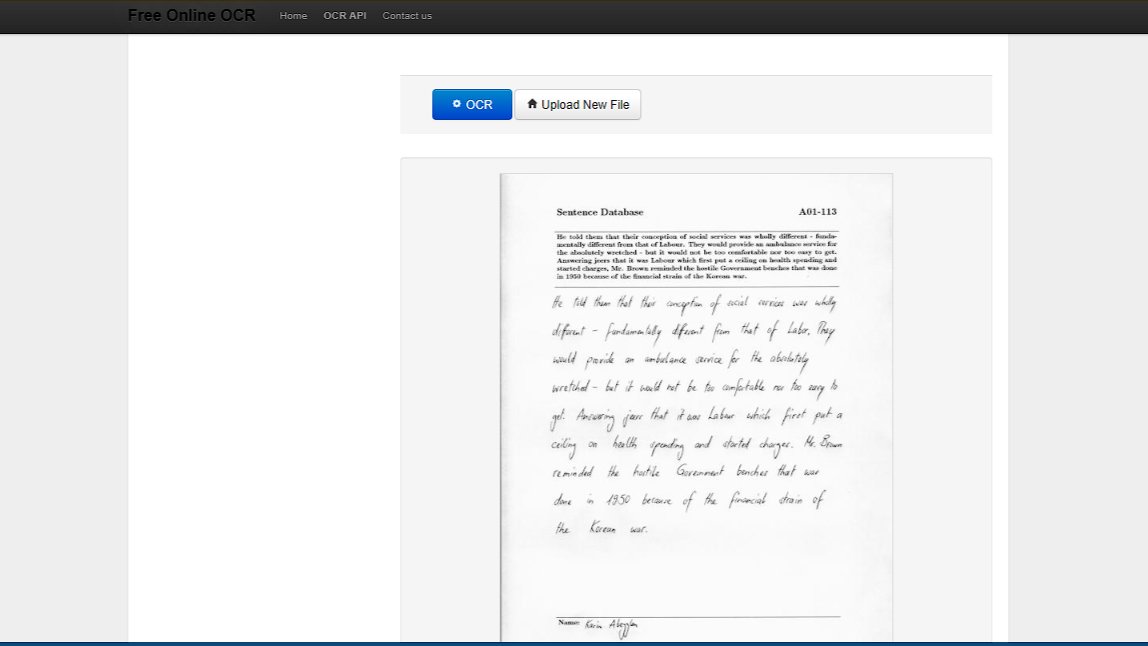 Free Online OCR Home OCR API Contact us
OCR Upload New File
Sentence Database A01-113
He told them that their conception of social services was wholly different - funda-
mentally different from that of Labour. They would provide an ambulance service for
the absolutely wretched - but it would not be too comfortable nor too easy to get.
Answering jeers that it was Labour which first put a ceiling on health spending and
started charges, Mr. Brown reminded the hostile Government benches that was done
in 1950 because of the financial strain of the Korean war.
He told them that their conception of social services was wholly
different - fundamentally different from that of Labor. They
would provide an ambulance service for the absolutely
wretched - but it would not be too comfortable nor too easy to
get. Answering jeers that it was Labour which first put a
ceiling on health spending and started charges. Mr. Brown
reminded the hostile Government benches that was
done in 1950 because of the financial strain of
the Korean war.
Name: Karin